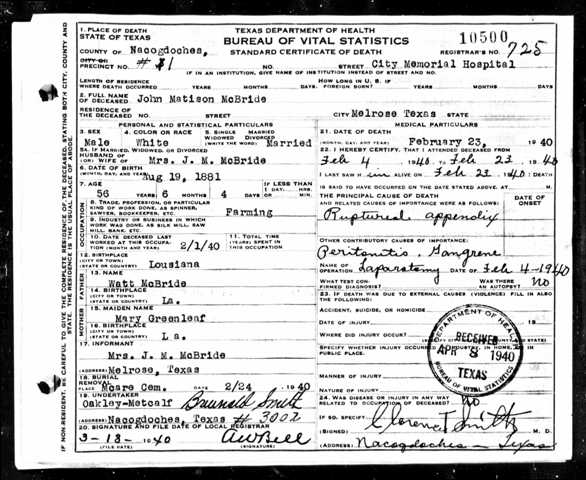 1. PLACE OF DEATH
STATE OF TEXAS
TEXAS DEPARTMENT OF HEALTH
BUREAU OF VITAL STATISTICS
STANDARD CERTIFICATE OF DEATH
10500
REGISTRAR'S NO. 725
COUNTY OF Nacogdoches,
CITY OR
PRECINCT NO. #1 NO. STREET City Memorial Hospital
IF IN AN INSTITUTION, GIVE NAME OF INSTITUTION INSTEAD OF STREET AND NO.
LENGTH OF RESIDENCE
WHERE DEATH OCCURRED YEARS MONTHS DAYS
HOW LONG IN U.S. IF
FOREIGN BORN? YEARS MONTHS DAYS
2. FULL NAME
OF DECEASED John Matison McBride
RESIDENCE OF
THE DECEASED NO. STREET CITY Melrose Texas STATE
PERSONAL AND STATISTICAL PARTICULARS
3. SEX 4. COLOR OR RACE 5. SINGLE MARRIED
WIDOWED DIVORCED
(WRITE THE WORD)
Male White Married
5A. IF MARRIED, WIDOWED, OR DIVORCED
HUSBAND OF
(OR) WIFE OF Mrs. J. M. McBride
6. DATE OF BIRTH
(MONTH, DAY, AND YEAR) Aug 19, 1881
7. AGE
56 YEARS 6 MONTHS 4 DAYS
IF LESS THAN
1 DAY, HRS. MIN.
OCCUPATION
8. TRADE, PROFESSION, OR PARTICULAR
KIND OF WORK DONE, AS SPINNER,
SAWYER, BOOKKEEPER, ETC. Farming
9. INDUSTRY OR BUSINESS IN WHICH
WORK WAS DONE, AS SILK MILL, SAW
MILL, BANK, ETC.
10. DATE DECEASED LAST
WORKED AT THIS OCCUPA-
TION (MONTH AND YEAR) 2/1/40
11. TOTAL TIME
(YEARS) SPENT IN
THIS OCCUPATION
12. BIRTHPLACE
(CITY OR TOWN)
(STATE OR COUNTRY) Lousiana
FATHER
13. NAME
Watt McBride
14. BIRTHPLACE
(CITY OR TOWN)
(STATE OR COUNTRY) La.
MOTHER
15. MAIDEN NAME
Mary Greenleaf
16. BIRTHPLACE
(CITY OR TOWN)
(STATE OR COUNTRY) La.
17. INFORMANT
Mrs. J. M. McBride
(ADDRESS) Melrose, Texas
18. BURIAL
REMOVAL
PLACE Mcare Cem. DATE 2/24 1940
19. UNDERTAKER
Oakley-Metcalf Smith
(ADDRESS) Nacogdoches, Texas # 3002
20. SIGNATURE AND FILE DATE OF LOCAL REGISTRAR
3-18-1940 AW Bell
(FILE DATE) (SIGNATURE)
MEDICAL PARTICULARS
21. DATE OF DEATH
(MONTH, DAY AND YEAR) February 23, 1940
22. I HEREBY CERTIFY, THAT I ATTENDED DECEASED FROM
Feb 4 1940 TO Feb 23 1940
I LAST SAW H im ALIVE ON Feb 23 1940; DEATH
IS SAID TO HAVE OCCURRED ON THE DATE STATED ABOVE, AT M.
THE PRINCIPAL CAUSE OF DEATH
AND RELATED CAUSES OF IMPORTANCE WERE AS FOLLOWS:
DATE OF
ONSET
Ruptured appendix
OTHER CONTRIBUTORY CAUSES OF IMPORTANCE:
Peritonitis. Gangrene
NAME OF
OPERATION Laparatomy DATE OF Feb 4-1940
WHAT TEST CON-
FIRMED DIAGNOSIS?
WAS THERE
AN AUTOPSY? No
23. IF DEATH WAS DUE TO EXTERNAL CAUSES (VIOLENCE) FILL IN ALSO
THE FOLLOWING:
ACCIDENT, SUICIDE, OR HOMICIDE?
DATE OF INJURY 19
WHERE DID INJURY OCCUR?
SPECIFY WHETHER INJURY OCCURRED IN INDUSTRY, IN HOME,
PUBLIC PLACE.
MANNER OF INJURY
NATURE OF INJURY
24. WAS DISEASE OR INJURY IN ANY WAY
RELATED TO OCCUPATION OF DECEASED? No
IF SO, SPECIFY
(SIGNED) Clarence T Smith M. D.
(ADDRESS) Nacogdoches - Texas
DEPARTMENT OF HEALTH
RECEIVED
APR 8 1940
TEXAS
BUREAU OF VITAL STATISTICS